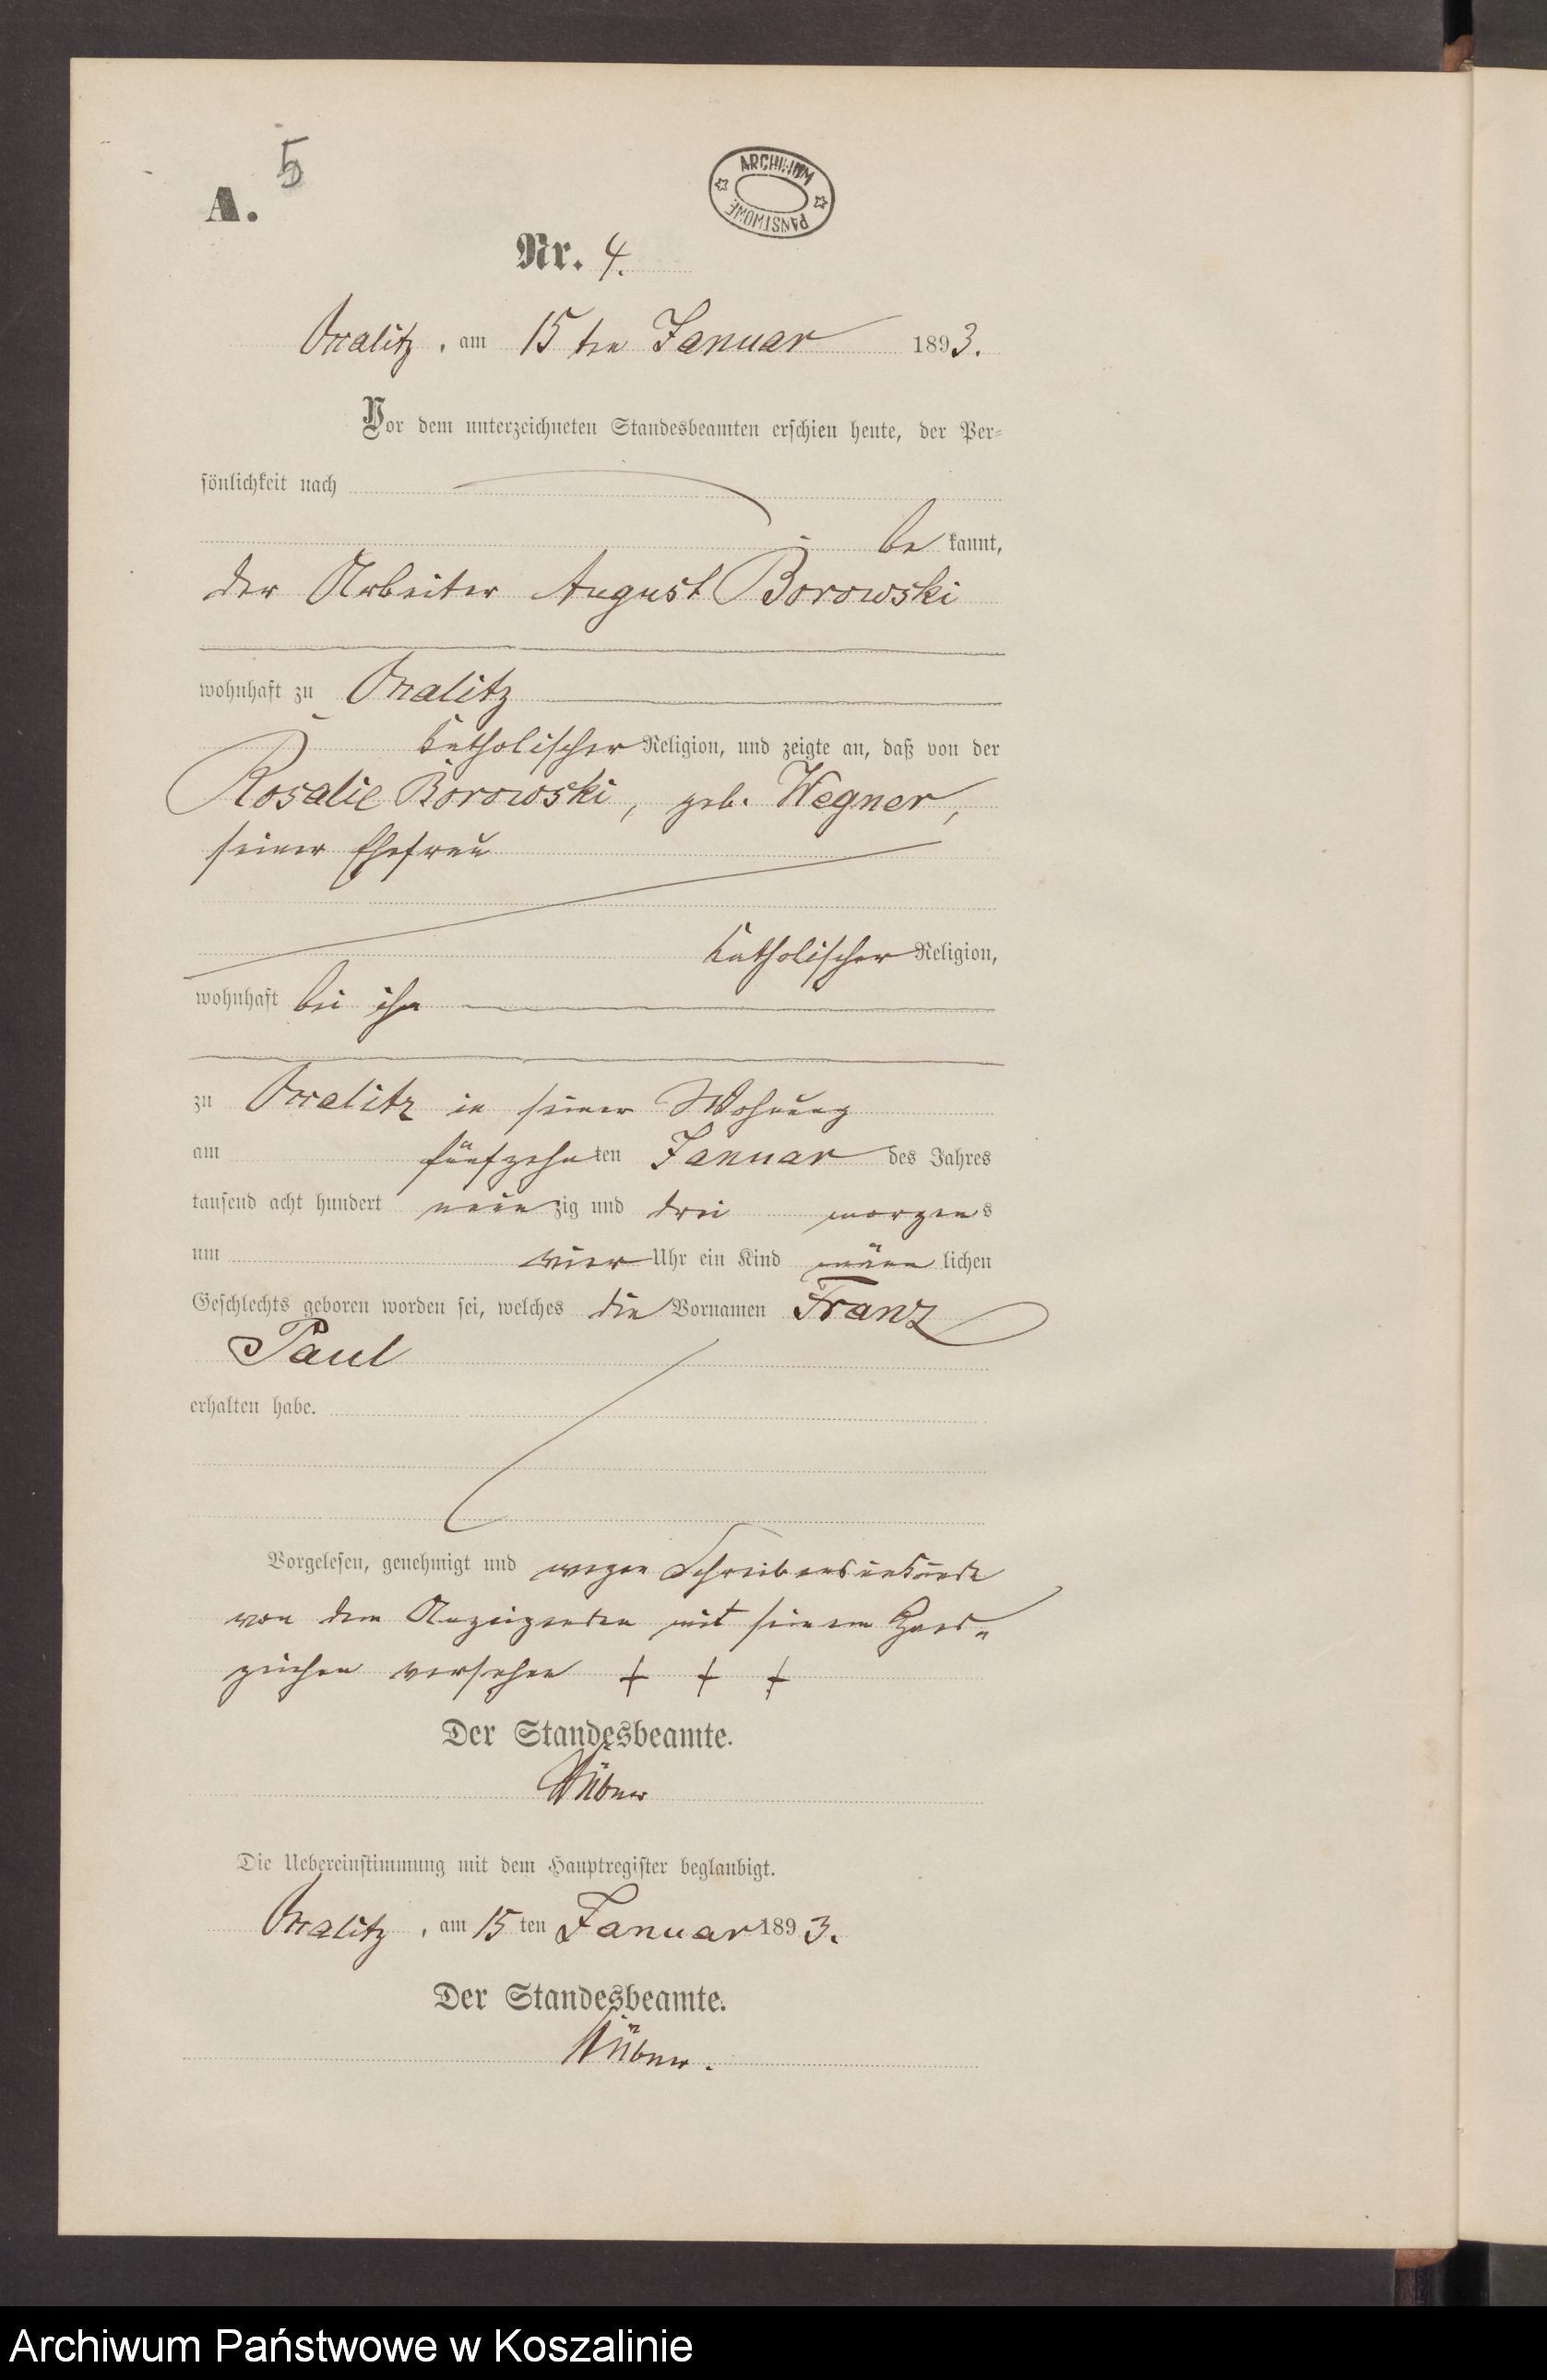 5
A.
ARCHIWUM PAŃSTWOWE
Nr. 4.
am 15 ten Januar 1893.
Vor dem unterzeichneten Standesbeamten erschien heute, der Per-
sönlichkeit nach
be kannt,
der Arbeiter August Borowski
wohnhaft zu
katholischer Religion, und zeigte an, daß von der
Rosalie Borowski, geb. Wegner,
seiner Ehefrau
katholischer Religion,
wohnhaft bei ihm
zu in seiner Wohnung
am fünfzehnten Januar des Jahres
tausend acht hundert neunzig und drei morgens
um vier Uhr ein Kind männlichen
Geschlechts geboren worden sei, welches die Vornamen Franz
Paul
erhalten habe.
Vorgelesen, genehmigt und wegen Schreibensunkunde
von dem Anzeigenden mit seinem Hand-
zeichen versehen + + +
Der Standesbeamte.
Die Uebereinstimmung mit dem Hauptregister beglaubigt.
am 15 ten Januar 1893.
Der Standesbeamte.
Archiwum Państwowe w Koszalinie